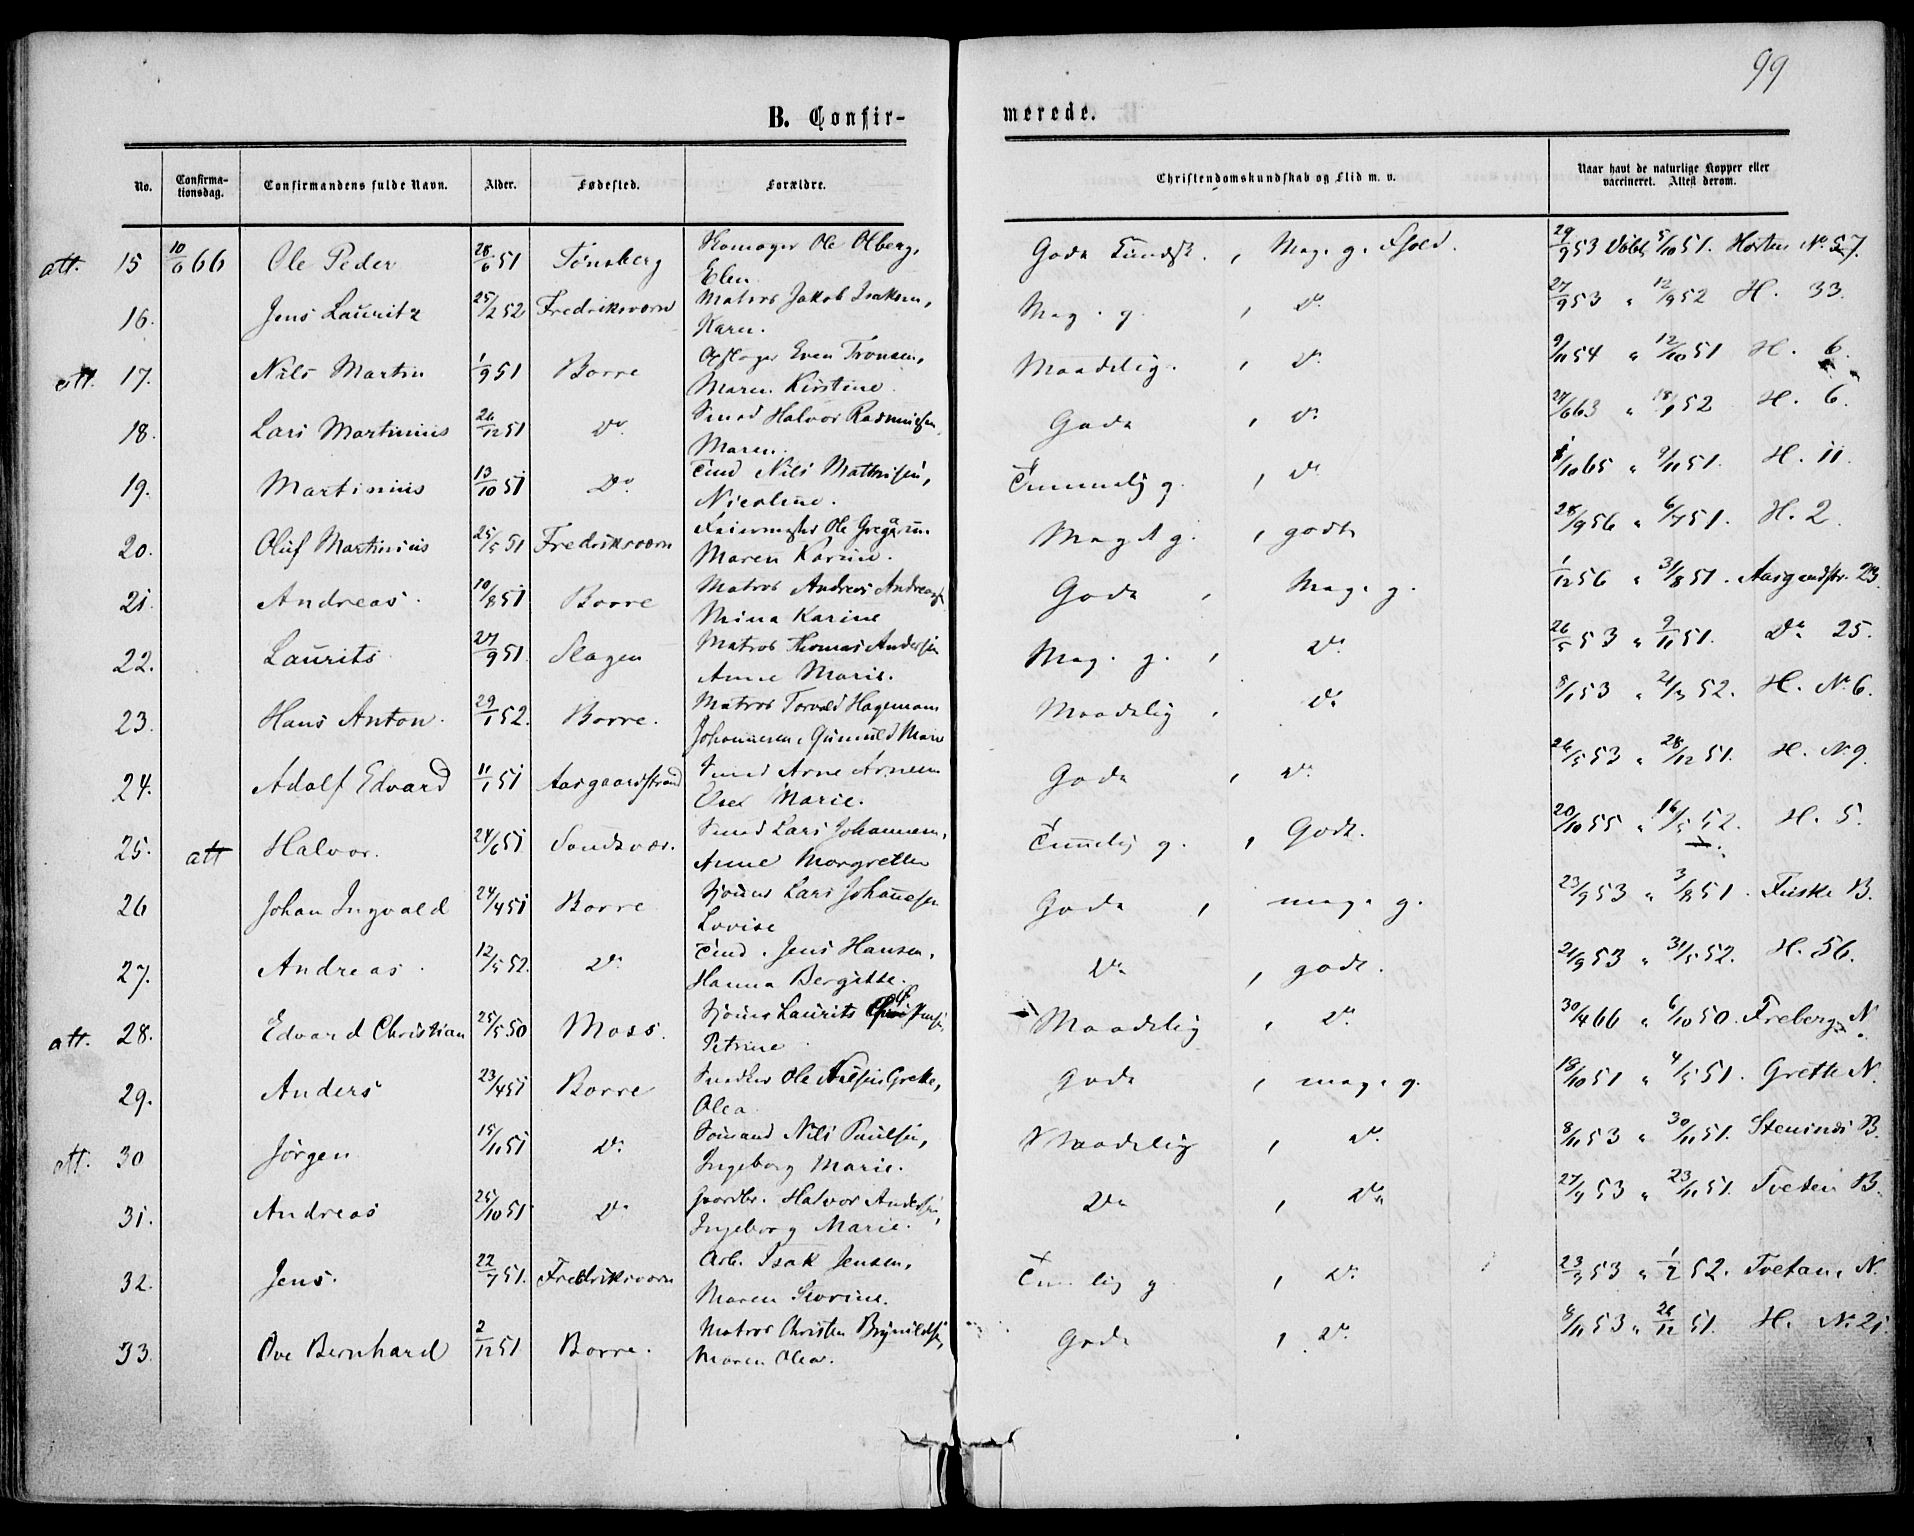 99
B. Confirmerede.
No. Confirmationsdag. Confirmandens fulde Navn. Alder. Fødested. Forældre. Christendomskundskab og Flid m. v. Naar havt de naturlige Kopper eller vaccineret. Attest derom.
att. 15 10/6 66 Ole Peder 28/6 51 Tønsberg Skomager Ole Olberg, Elen Gode Kundsk., Meg. g. Fhold. 29/9 53 Døbt 5/10 51. Horten No. 57.
16. Jens Lauritz 25/2 52 Fredriksværn Matros Jakob Isaksen, Karen. Meg. g., Do 27/9 53 " 12/9 52 H. 33.
att. 17. Nils Martin 1/9 51 Borre Even Tronsen, Maren Kirstine. Maadelig., Do 9/11 54 " 12/10 51 H. 6.
18. Lars Martinius 26/12 51 Do Smed Halvor Rasmussen, Maren. Gode, Do 27/6 63 " 18/1 52 H. 6.
19. Martinius 13/10 51 Do Tmd Nils Mathisen, Nicoline. Temmelig g., Do /10 65 " 9/11 51. H. 11.
20. Oluf Martinius 25/5 51 Fredriksværn Ole Maren Karine. Meget g., godt 28/9 56 " 6/7 51. H. 2.
21. Andreas. 10/8 51 Borre Matros Andreas Andreas Mina Karine Gode, Meg. g. 1/12 56 " 31/8 51. Aasgaardstr. 23.
22. Laurits 27/9 51 Slagen Matros Thomas Andersen Anne Marie. Meg. g., Do 26/5 53 " 9/11 51. Do 25.
23. Hans Anton. 29/1 52. Borre. Matros Torvald Hagemann Johannesen, Gunnild Marie Maadelig, Do 8/1 53 " 21/3 52. H. No. 6.
24. Adolf Edvard 11/1 51 Aasgaardstrand Smed Arne Arnesen Marie. Gode, Do 26/5 53 " 28/12 51. H. N 9.
25. att Halvor. 24/6 51 Sandsvær. Smed Lars Johannesen, Anne Margrethe Temmelig g., Godt. 20/10 55 " 16/5 52. H. 5.
26 Johan Ingvald 24/4 51 Borre Lars Johannesen Lovise Gode, meg. g. 23/9 53 " 3/8 51. Fuske B.
27. Andreas. 12/5 52. Do Tmd. Jens Hansen, Hanna Bergitte. Do, godt. 21/9 53 " 31/5 52. H. 56.
att. 28. Edvard Christian 25/5 50 Moss. Laurits Petrine Maadelig, Do 30/4 66 " 6/10 50. Freberg N.
29. Anders 23/4 51 Borre Ole Nilsen Grette, Olea Gode, meg. g. 18/10 51 " 4/5 51. Grette N.
att. 30 Jørgen 15/11 51 Do Sømand Nils Paulsen, Ingeborg Marie. Maadelig, Do 8/11 53 " 30/11 51. Stensnæs B.
31. Andreas 25/10 51 Do Gaardbr. Halvor Andersen, Ingeborg Marie. Do, Do 27/4 53 " 23/11 51. Tveten B.
32. Jens. 22/7 51. Fredriksværn Arb. Isak Jensen, Maren Severine. Temmelig g, Do 23/3 53 " 1/2 52. Tvetan, N.
33. Ove Bernhard 2/12 51 Borre. Matros Christen Brynildsen, Maren Olea. Gode, Do 8/11 53 " 26/12 51. H. No. 21.